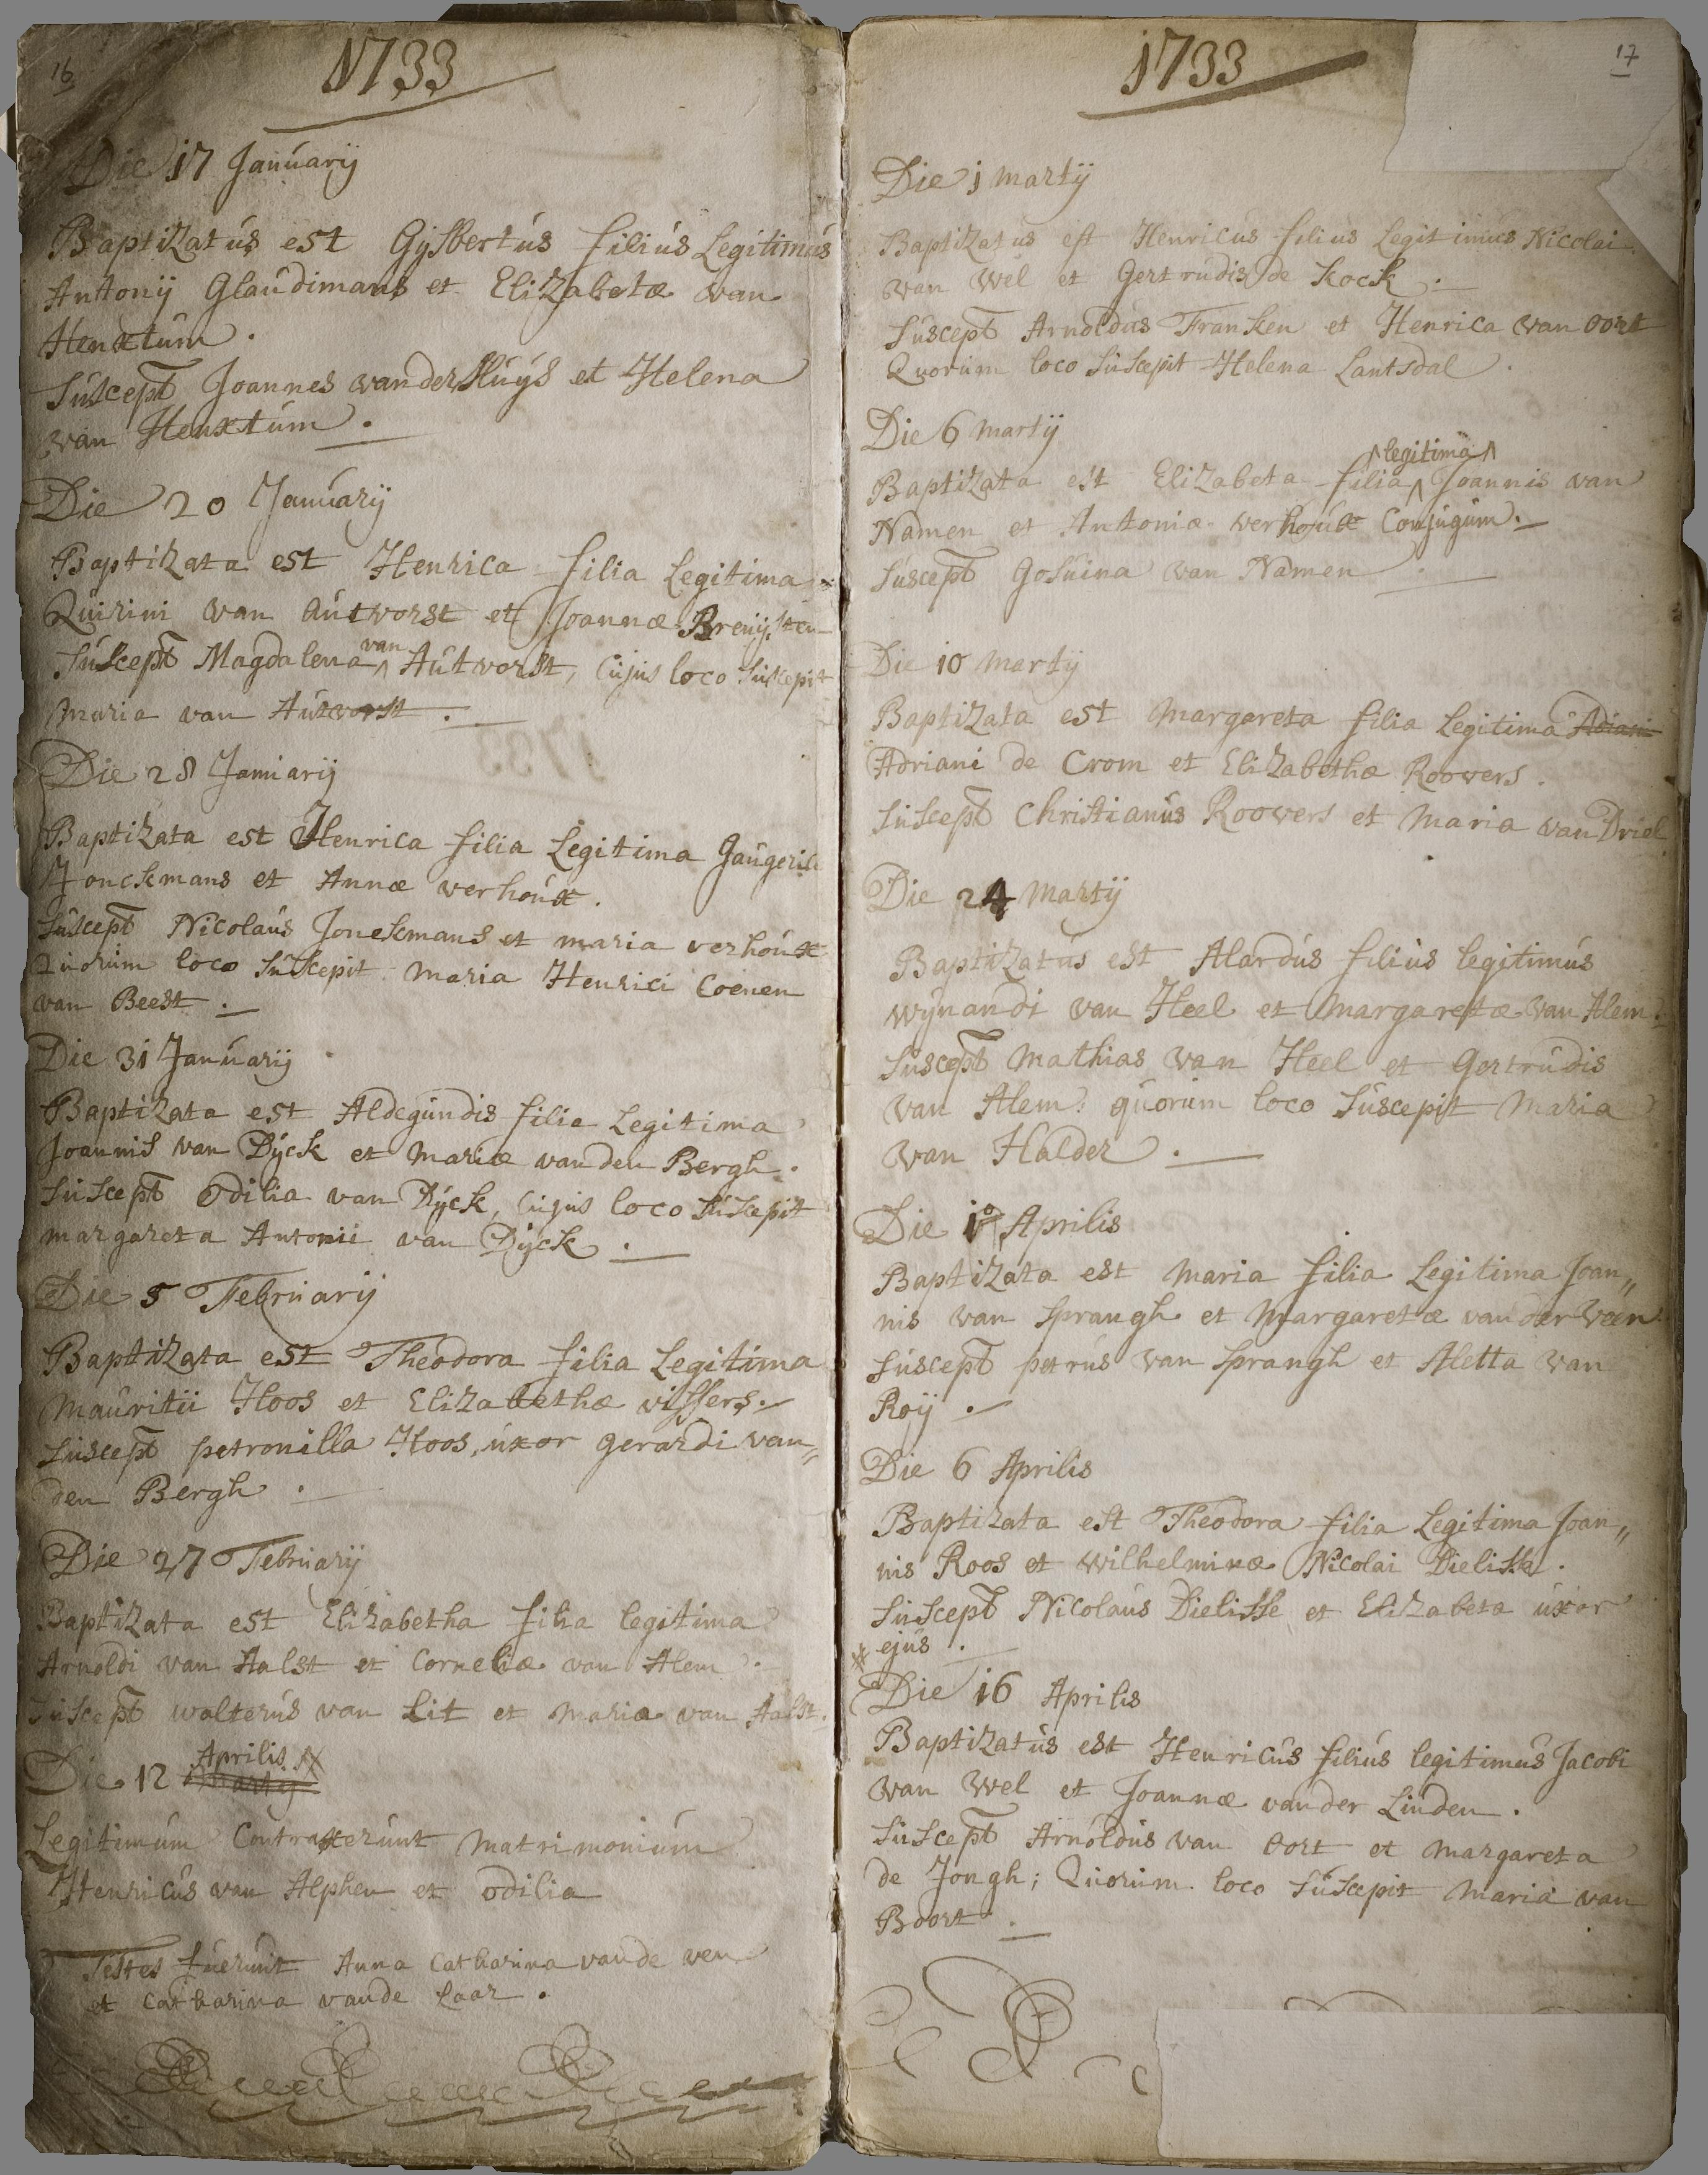 16
1733
Die 17 Januarij
Baptizatus est Gysbertus filius Legitimus
Antonij Glaudimans et Elizabetæ van
Henxtum.
Suscept Joannes vander Sluys et Helena
van Henxtum.
Die 20 Januarij
Baptizata est Henrica filia Legitima
Quirini van Autvorst et Joannæ
Suscept Magdalena van Autvorst, cujus loco suscepit
Maria van Autvorst.
Die 28 Januarij
Baptizata est Henrica filia Legitima
Jonckmans et Annæ verhoux.
Suscept Nicolaus Jonckmans et maria verhoux
Quorum loco suscepit Maria Henrici Coenen
van Beest.
Die 31 Januarij
Baptizata est Aldegundis filia Legitima
Joannis van Dyck et Mariæ vanden Bergh.
Suscept Odilia van Dyck, cujus loco suscepit
margareta Antonii van Dyck.
Die 5 Februarij
Baptizata est Theodora filia Legitima
Mauritii Hoos et Elizabethæ vissers.
Suscept petronilla Hoos, uxor gerardi van„
den Bergh.
Die 27 Februarij
Baptizata est Elizabetha filia legitima
Arnoldi van Aalst et Corneliæ van Alem.
Suscept walterus van Lit et Maria van Aalst.
Aprilis
Die 12 Martij
Legitimum Contraxerunt Matrimonium
Henricus van Alphen et odilia
Testes fuerunt Anna Catharina vande ven
et Catharina vande Laar.
17
1733
Die 1 Martij
Baptizatus est Henricus filius Legitimus Nicolai
van Wel et Gertrudis de Kock.
Suscept Arnoldus Franken et Henrica van Oort
Quorum loco suscepit Helena Lantsdal.
Die 6 Martij
legitima
Baptizata est Elizabeta filia Joannis van
Namen et Antoniæ verhoux Conjugum.
Suscept Gosuina van Namen.
Die 10 Martij
Baptizata est Margareta filia Legitima Adiani
Adriani de Crom et Elizabethæ Roovers.
Suscept Christianus Roovers et Maria van Driel
Die 24 Martij
Baptizatus est Alardus filius legitimus
wynandi van Heel et Margaretæ van Alem.
Suscept Mathias van Heel et Gertrudis
van Alem: quorum loco suscepit Maria
van Halder.
Die 1º Aprilis
Baptizata est Maria filia Legitima Joan„
nis van Sprangh et Margaretæ vander Veen
Suscept petrus van Sprangh et Aletta van
Roij.
Die 6 Aprilis
Baptizata est Theodora filia Legitima Joan„
nis Roos et wilhelminæ Nicolai Dielisse.
Suscept Nicolaus Dielisse et Elizabeta uxor
ejus.
Die 16 Aprilis
Baptizatus est Henricus filius legitimus Jacobi
van Wel et Joannæ vander Linden.
Suscept Arnoldus van Oort et Margareta
de Jongh; Quorum loco suscepit Maria van
Boort.